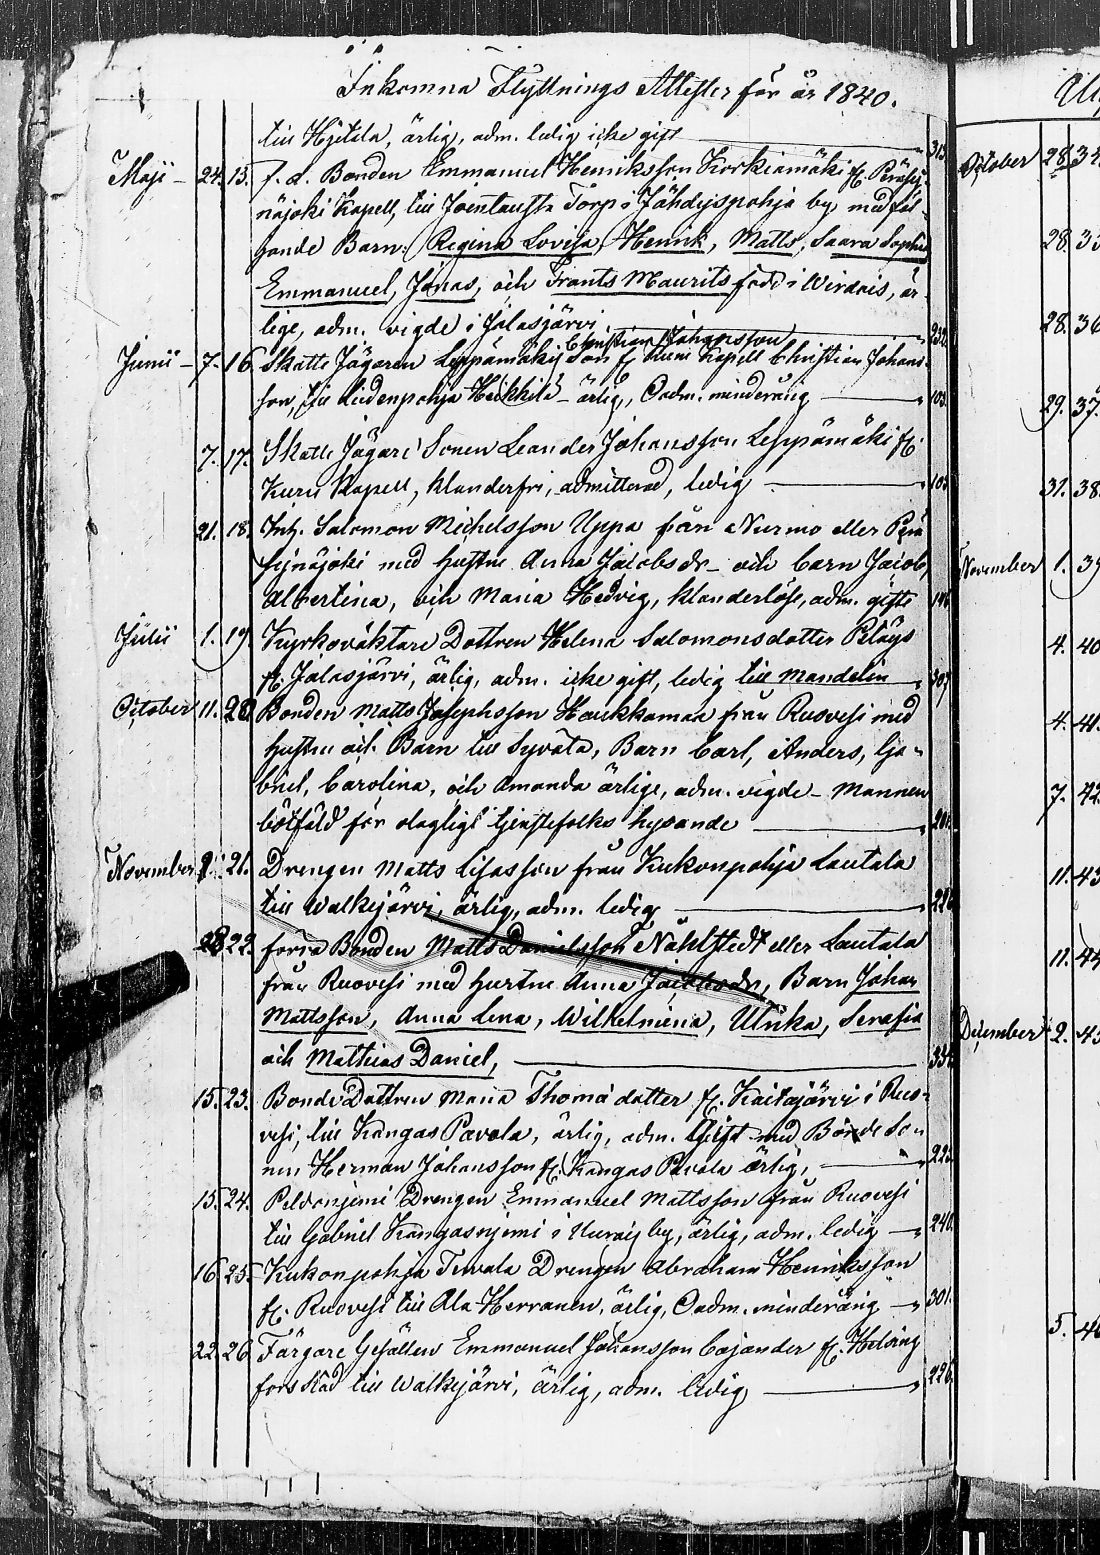 Inkomna Flyttnings Attester för år 1840.
till Hjelala, ärlig, adm. ledig icke gift 313.
Maji 24. 15. f. d. Bonden Emmanuel Henriksson Korkiamäki fr. Peräsej-
näjoki Kapell, till Joentausta Torp i Jähdyspohja by med föl-
jande Barn: Regina Lovisa, Henrik, Matts, Saara Sophia
Emmanuel, Jonas, och Frants Maurits född i Wirdois, är-
lige, adm. vigde i Jalasjärvi, 232.
Christian Johansson
Junii 7. 16. Skatte Jägaren Leppämäki Son fr. Kuru Kapell Christian Johans-
son, till Liedenpohja Heikkilä ärlig, Oadm. minderårig 103.
7. 17. Skatte Jägare Sonen Leander Johansson Leppämäki fr.
Kuru Kapell, klanderfri, admitterad, ledig 103.
21. 18. Inh. Salomon Michelsson Uppa från Nurmo eller Perä
sejnäjoki med hustru Anna Jacobsdr och barn Jacob,
Albertina, och Maria Hedvig, klanderlöse, adm. gifte
Julii 1. 19. Kyrkoväktare Dottren Helena Salomonsdotter
fr. Jalasjärvi, ärlig, adm. icke gift, ledig till Mandelin 307
October 11. 20. Bonden Matts Josephsson Haukkamaa från Ruovesi med
hustru och Barn till Syväta, Barn Carl, Anders, Ga-
briel, Carolina, och Amanda ärlige, adm. vigde – Mannen
bötfäld för olagligt tjenstefolks hysande 201.
November 21. Drengen Matts Lisasson från Kukonpohja Lautala
till Walkejärvi, ärlig, adm. ledig 226
22. förra Bonden Matts Danielsson Nåhlstedt eller Lautala
från Ruovesi med hustru Anna Jacobsdr, Barn Johan
Mattsson, Anna Lena, Wilhelmina, Ulrika, Serafia
och Mathias Daniel, 334.
15. 23. Bonde Dottren Maria Thomædotter fr. Kaitajärvi i Ruo-
vesi, till Kangas Pavola, ärlig, adm. Gift med Bonde So-
nen Herman Johansson fr. Kangas Pavola ärlig, 222.
15. 24. Peldoniemi Drengen Emmanuel Mattsson från Ruovesi
till Gabriel Kangasniemi i by, ärlig, adm. ledig 240.
16. 25. Kukonpohja Tervala Drengen Abraham Henriksson
fr. Ruovesi till Ala Herranen, ärlig, Oadm. minderårig 301.
22. 26. Färgare Gesällen Emmanuel Johansson Cajander fr. Helsing
fors Stad till Walkejärvi, ärlig, adm. ledig 226.
October 28. 34.
28.
28. 36
29. 37.
31. 38.
November 1. 39
4. 40
4. 41.
7. 42.
11. 43
11. 44
December 2. 45
5. 46